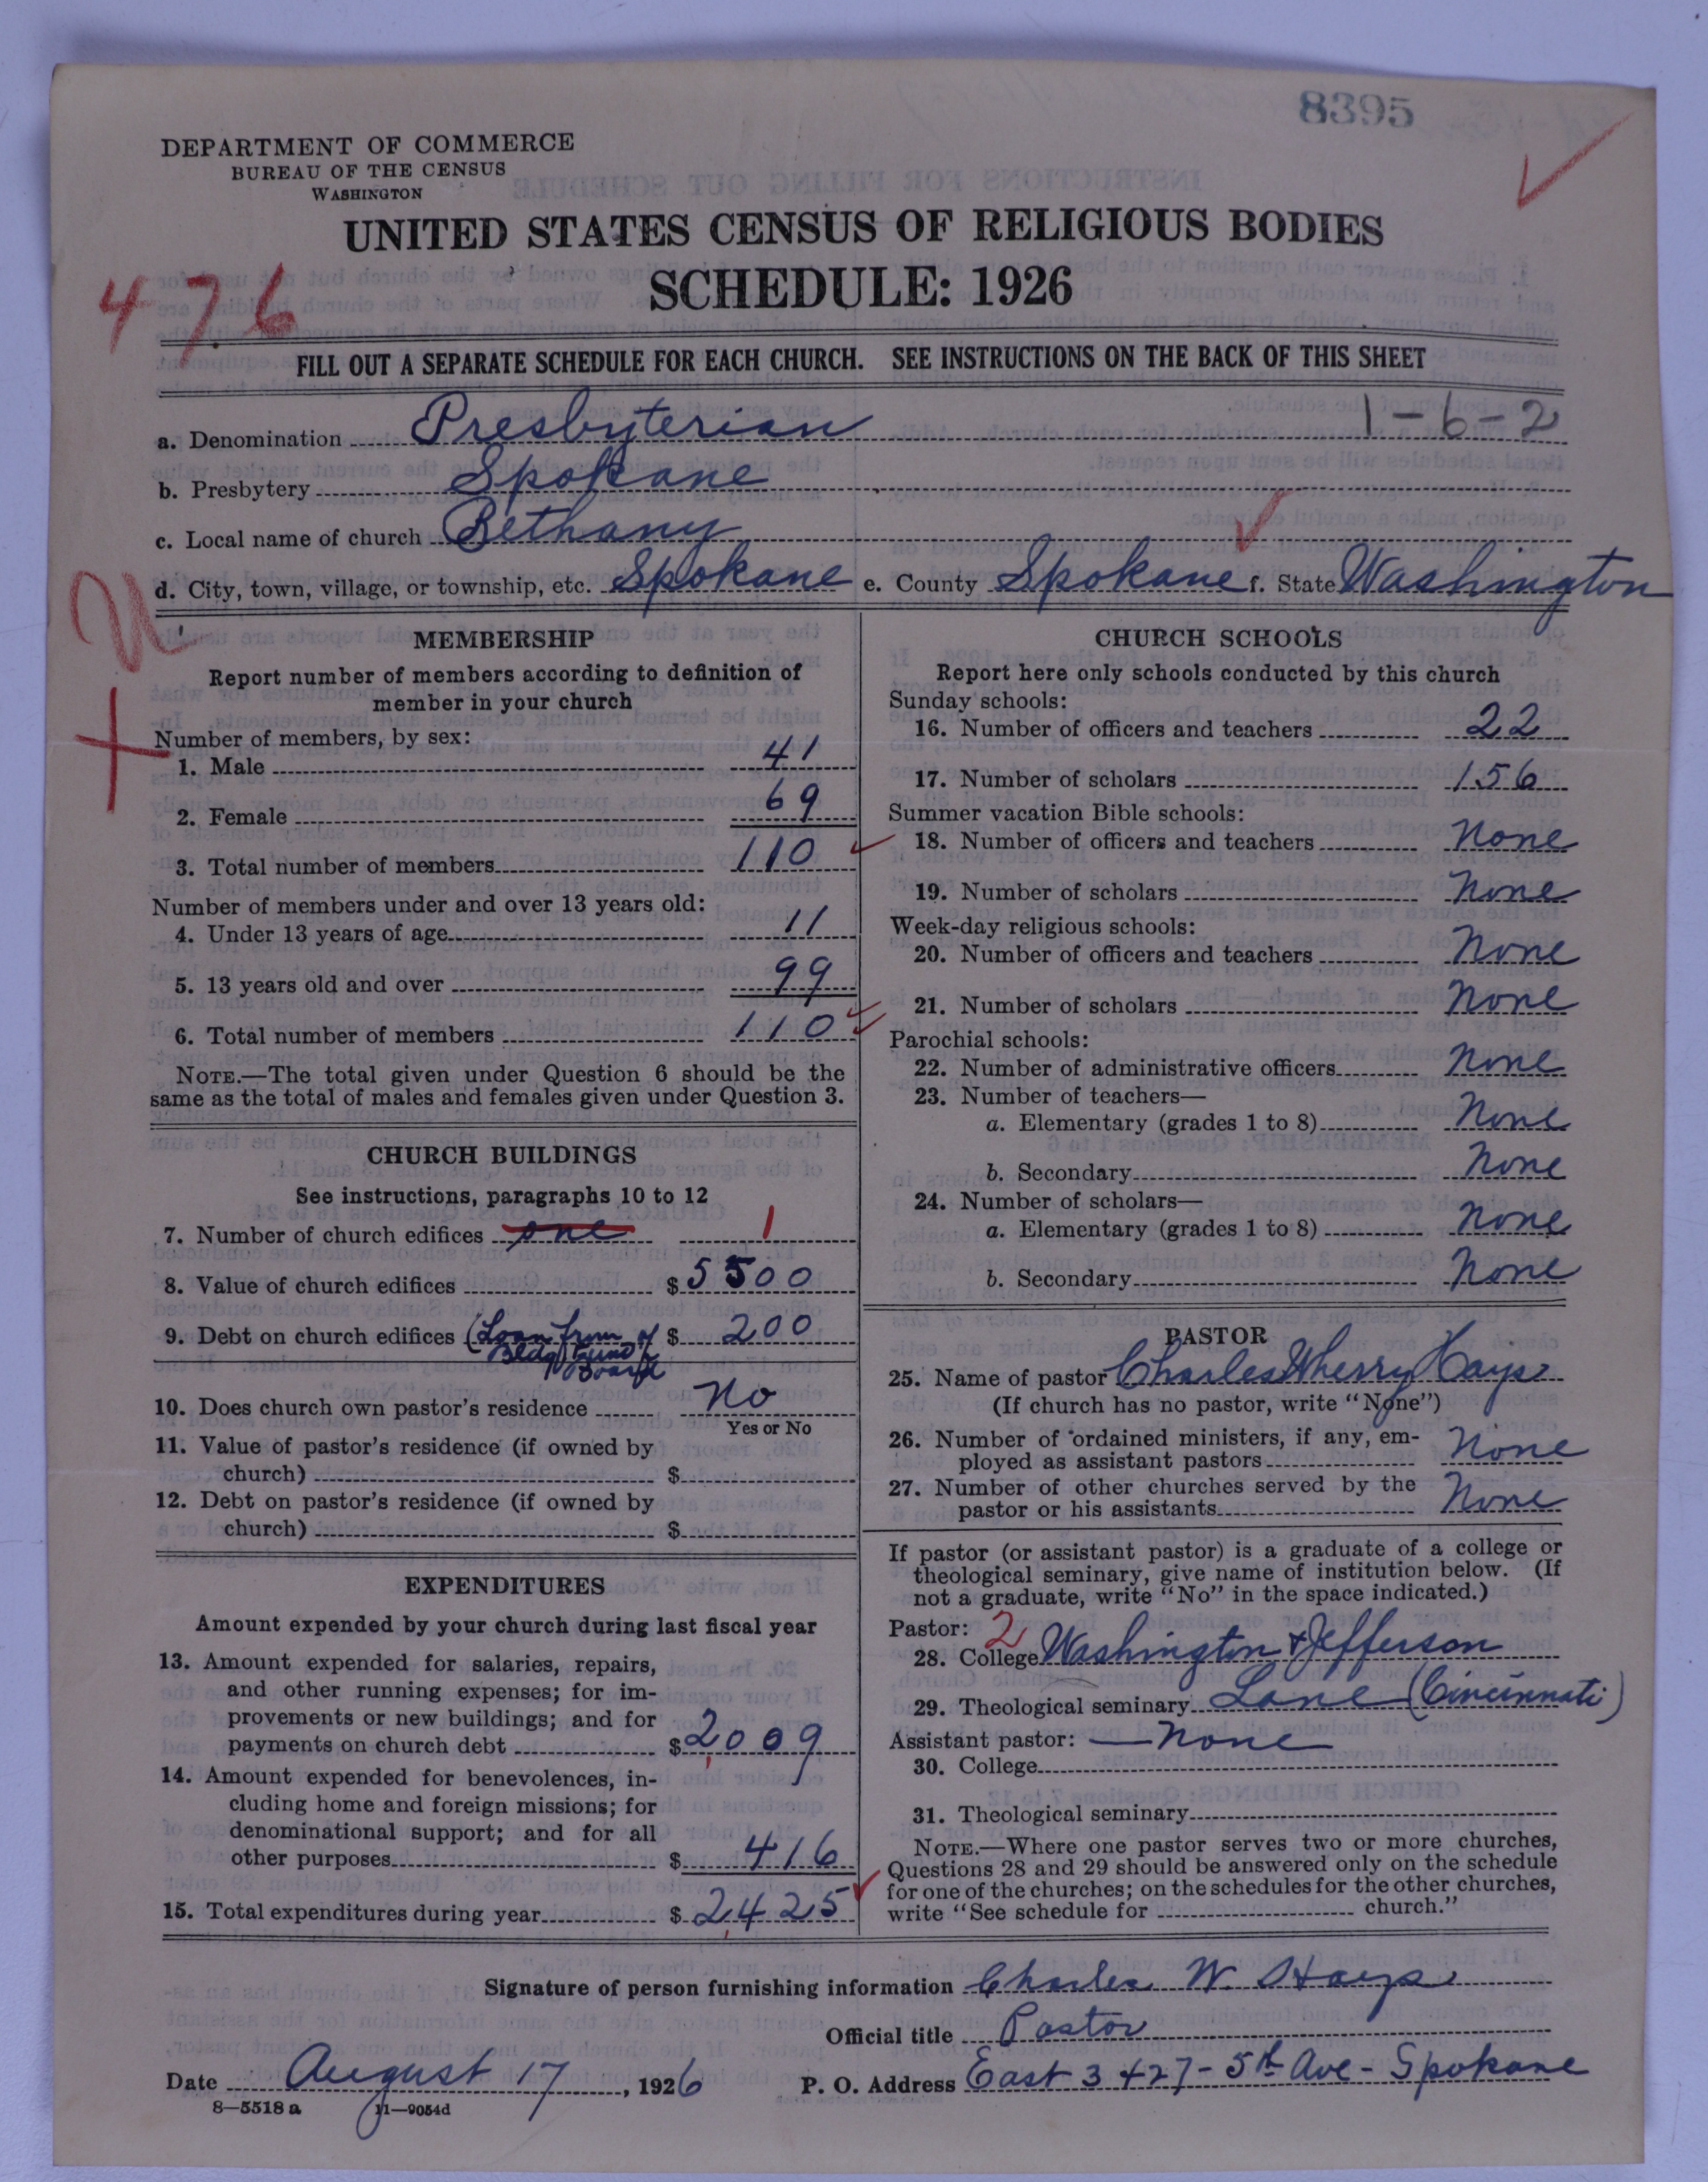 8395
DEPARTMENT OF COMMERCE
BUREAU OF THE CENSUS
WASHINGTON
UNITED STATES CENSUS OF RELIGIOUS BODIES
SCHEDULE: 1926
476
FILL OUT A SEPARATE SCHEDULE FOR EACH CHURCH. SEE INSTRUCTIONS ON THE BACK OF THIS SHEET
a. Denomination Presbyterian 1-6-2
b. Presbytery Spokane
c. Local name of church Bethany
d. City, town, village, or township, etc. Spokane e. County Spokane f. State Washington
MEMBERSHIP
Report number of members according to definition of
member in your church
Number of members, by sex:
1. Male 41
2. Female 69
3. Total number of members 110
Number of members under and over 13 years old:
4. Under 13 years of age 11
5. 13 years old and over 99
6. Total number of members 110
NOTE.—The total given under Question 6 should be the
same as the total of males and females given under Question 3.
CHURCH BUILDINGS
See instructions, paragraphs 10 to 12
7. Number of church edifices one 1
8. Value of church edifices $5500
9. Debt on church edifices (Loan from $ 200
Bldg Fund of
Board
10. Does church own pastor's residence No
Yes or No
11. Value of pastor's residence (if owned by
church) $
12. Debt on pastor's residence (if owned by
church) $
EXPENDITURES
Amount expended by your church during last fiscal year
13. Amount expended for salaries, repairs,
and other running expenses; for im-
provements or new buildings; and for
payments on church debt $2,009
14. Amount expended for benevolences, in-
cluding home and foreign missions; for
denominational support; and for all
other purposes $ 416
15. Total expenditures during year $ 2,425
CHURCH SCHOOLS
Report here only schools conducted by this church
Sunday schools:
16. Number of officers and teachers 22
17. Number of scholars 156
Summer vacation Bible schools:
18. Number of officers and teachers None
19. Number of scholars None
Week-day religious schools:
20. Number of officers and teachers None
21. Number of scholars None
Parochial schools:
22. Number of administrative officers None
23. Number of teachers—
a. Elementary (grades 1 to 8) None
b. Secondary None
24. Number of scholars—
a. Elementary (grades 1 to 8) None
b. Secondary None
PASTOR
25. Name of pastor Charles Wherry Hays
(If church has no pastor, write "None")
26. Number of ordained ministers, if any, em-
ployed as assistant pastors None
27. Number of other churches served by the
pastor or his assistants None
If pastor (or assistant pastor) is a graduate of a college or
theological seminary, give name of institution below. (If
not a graduate, write "No" in the space indicated.)
Pastor: 2
28. College Washington & Jefferson
29. Theological seminary Lane (Cincinnati)
Assistant pastor: — None
30. College
31. Theological seminary
NOTE.—Where one pastor serves two or more churches,
Questions 28 and 29 should be answered only on the schedule
for one of the churches; on the schedules for the other churches,
write "See schedule for church."
Signature of person furnishing information Charles W. Hays
Official title Pastor
Date August 17, 1926 P. O. Address East 3427 - 5th Ave - Spokane
8—5518 a 11—9054d